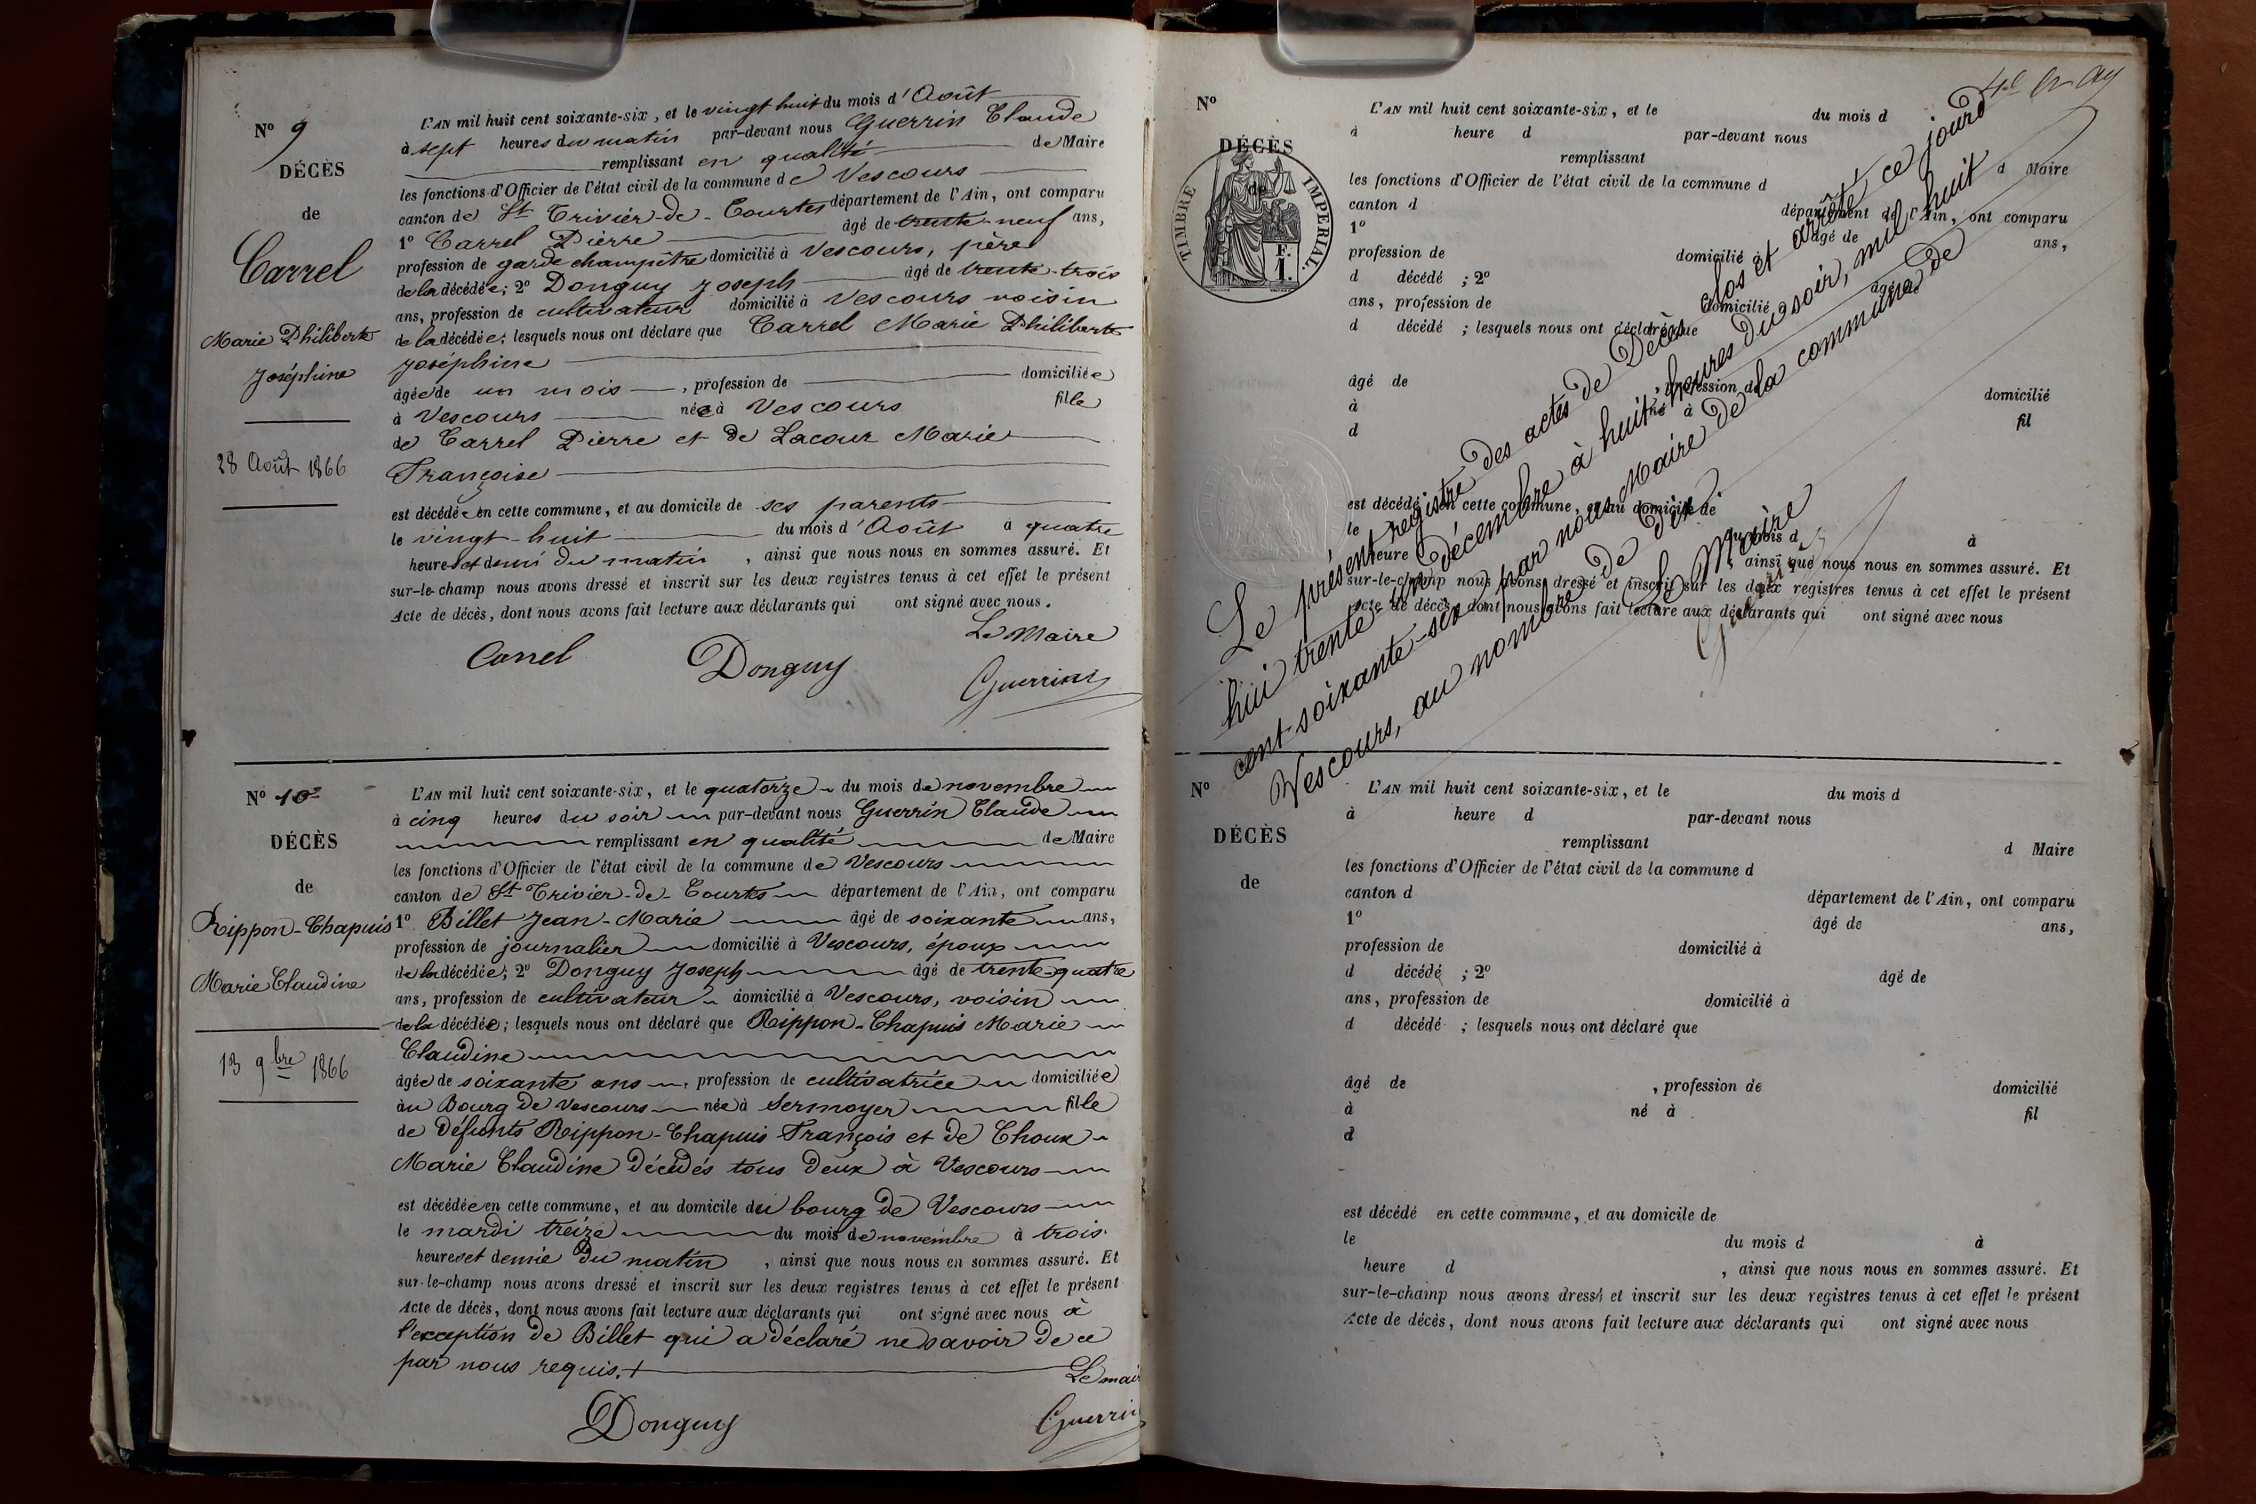 N° 9
DÉCÈS
de
Carrel
Marie Philiberte
Joséphine
28 Août 1866
L'AN mil huit cent soixante-six, et le vingt huit du mois d'Août
à sept heures du matin par-devant nous Guerrin Claude
remplissant en qualité de Maire
les fonctions d'Officier de l'état civil de la commune de Vescours
canton de St Trivier-de-Courtes département de l'Ain, ont comparu
1° Carrel Pierre âgé de trente-neuf ans,
profession de garde champêtre domicilié à Vescours, père
de la décédée; 2° Donguy Joseph âgé de trente-trois
ans, profession de cultivateur domicilié à Vescours voisin
de la décédée; lesquels nous ont déclaré que Carrel Marie Philiberte
Joséphine
âgée de un mois, profession de domiciliée
à Vescours née à Vescours fille
de Carrel Pierre et de Lacour Marie
Françoise
est décédée en cette commune, et au domicile de ses parents
le vingt-huit du mois d'Août à quatre
heures et demi du matin, ainsi que nous nous en sommes assuré. Et
sur-le-champ nous avons dressé et inscrit sur les deux registres tenus à cet effet le présent
Acte de décès, dont nous avons fait lecture aux déclarants qui ont signé avec nous.
Le Maire
Carrel Donguy Guerrin
N° 10
DÉCÈS
de
Rippon-Chapuis
Marie Claudine
13 9bre 1866
L'AN mil huit cent soixante-six, et le quatorze du mois de novembre
à cinq heures du soir par-devant nous Guerrin Claude
remplissant en qualité de Maire
les fonctions d'Officier de l'état civil de la commune de Vescours
canton de St Trivier-de-Courtes département de l'Ain, ont comparu
1° Billet Jean-Marie âgé de soixante ans,
profession de journalier domicilié à Vescours, époux
de la décédée; 2° Donguy Joseph âgé de trente-quatre
ans, profession de cultivateur domicilié à Vescours, voisin
de la décédée; lesquels nous ont déclaré que Rippon-Chapuis Marie
Claudine
âgée de soixante ans, profession de cultivatrice domiciliée
au Bourg de Vescours née à Sermoyer fille
de défunts Rippon-Chapuis François et de Choux
Marie Claudine décédés tous deux à Vescours
est décédée en cette commune, et au domicile du bourg de Vescours
le mardi treize du mois de novembre à trois
heures et demie du matin, ainsi que nous nous en sommes assuré. Et
sur-le-champ nous avons dressé et inscrit sur les deux registres tenus à cet effet le présent
Acte de décès, dont nous avons fait lecture aux déclarants qui ont signé avec nous à
l'exception de Billet qui a déclaré ne savoir de ce
par nous requis.
Le mair
Donguy Guerrin
N°
DÉCÈS
de
TIMBRE IMPERIAL.
F.
1.
L'AN mil huit cent soixante-six, et le du mois d
à heure d par-devant nous
remplissant d Maire
les fonctions d'Officier de l'état civil de la commune d
canton d département de l'Ain, ont comparu
1° âgé de ans,
profession de domicilié à
d décédé ; 2° âgé de
ans, profession de domicilié à
d décédé ; lesquels nous ont déclaré que
âgé de , profession de domicilié
à né à fil
d
est décédé en cette commune, et au domicile de
le du mois d à
heure , ainsi que nous nous en sommes assuré. Et
sur-le-champ nous avons dressé et inscrit sur les deux registres tenus à cet effet le présent
Acte de décès, dont nous avons fait lecture aux déclarants qui ont signé avec nous
Le présent registre des actes de Décès clos et arrêté ce jourd
hui trente un décembre à huit heures du soir, mil huit
cent soixante-six par nous Maire de la commune de
Vescours, au nombre de dix
Le Maire
Guerrin
N°
DÉCÈS
de
L'AN mil huit cent soixante-six, et le du mois d
à heure d par-devant nous
remplissant d Maire
les fonctions d'Officier de l'état civil de la commune d
canton d département de l'Ain, ont comparu
1° âgé de ans,
profession de domicilié à
d décédé ; 2° âgé de
ans, profession de domicilié à
d décédé ; lesquels nous ont déclaré que
âgé de , profession de domicilié
à né à fil
d
est décédé en cette commune, et au domicile de
le du mois d à
heure d , ainsi que nous nous en sommes assuré. Et
sur-le-champ nous avons dressé et inscrit sur les deux registres tenus à cet effet le présent
Acte de décès, dont nous avons fait lecture aux déclarants qui ont signé avec nous